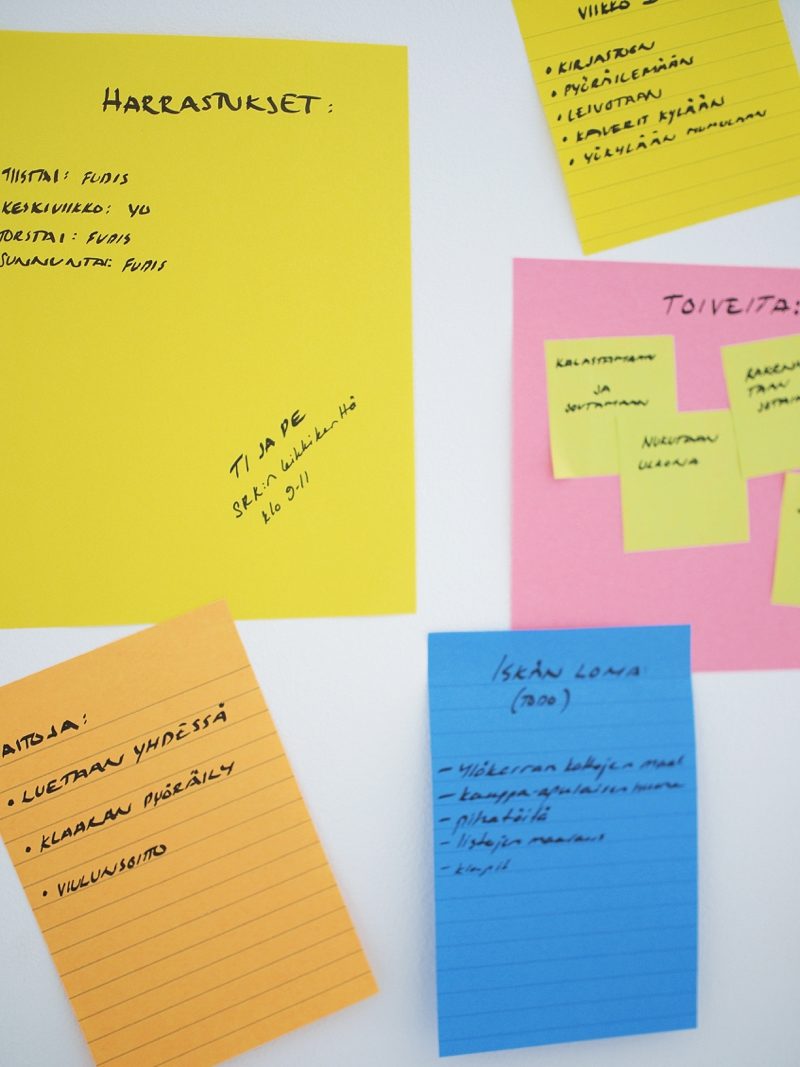 HARRASTUKSET:
TIISTAI: FUDIS
KESKIVIIKKO: YU
TORSTAI: FUDIS
SUNNUNTAI: FUDIS
TI JA PE
SRK:n leikkikenttä
klo 9-11
VIIKKO
• KIRJASTOON
• PYÖRÄILEMÄÄN
• LEIVOTAAN
• KAVERIT KYLÄÄN
• YÖKYLÄÄN MUMULAAN
TOIVEITA:
KALASTAMAAN
JA
SOUTAMAAN
NUKUTAAN
ULKONA
RAKENNE
TAAN
JOTAIN
AITOJA:
• LUETAAN YHDESSÄ
• KLAARAN PYÖRÄILY
• VIULUNSOITTO
ISKÄN LOMA
(TODO)
- yläkerran kattojen maal
- kauppa-apulaisen huone
- pihatöitä
- listojen maalaus
- klapit